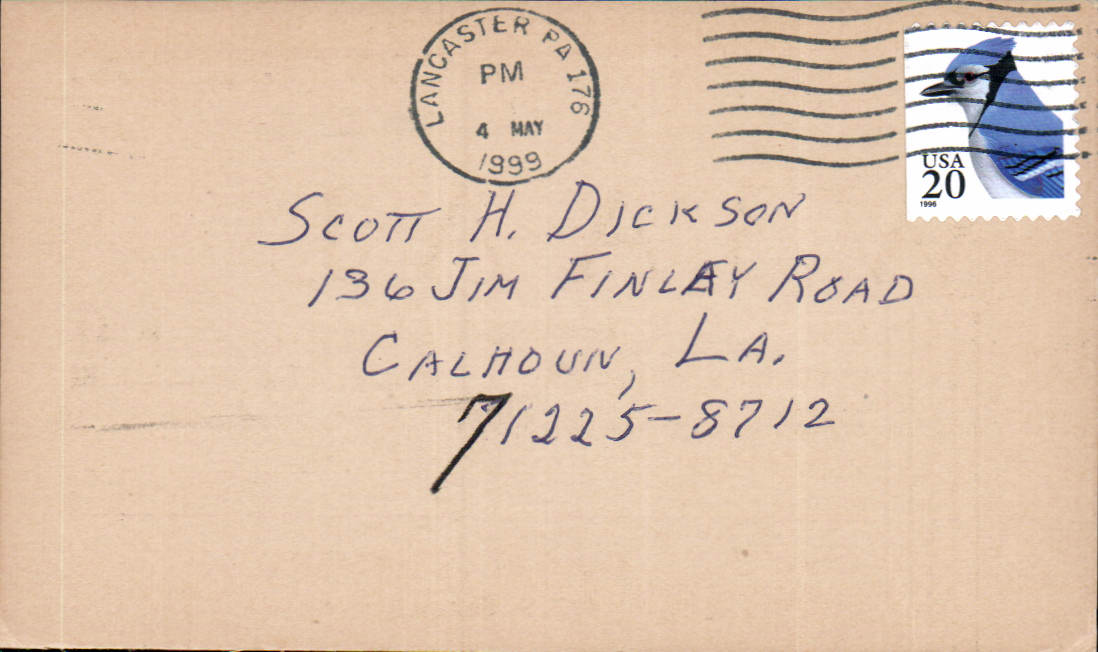 LANCASTER PA 176
PM
4 MAY
1999
USA
20
1996
SCOTT H. DICKSON
136 JIM FINLEY ROAD
CALHOUN, LA.
71225-8712